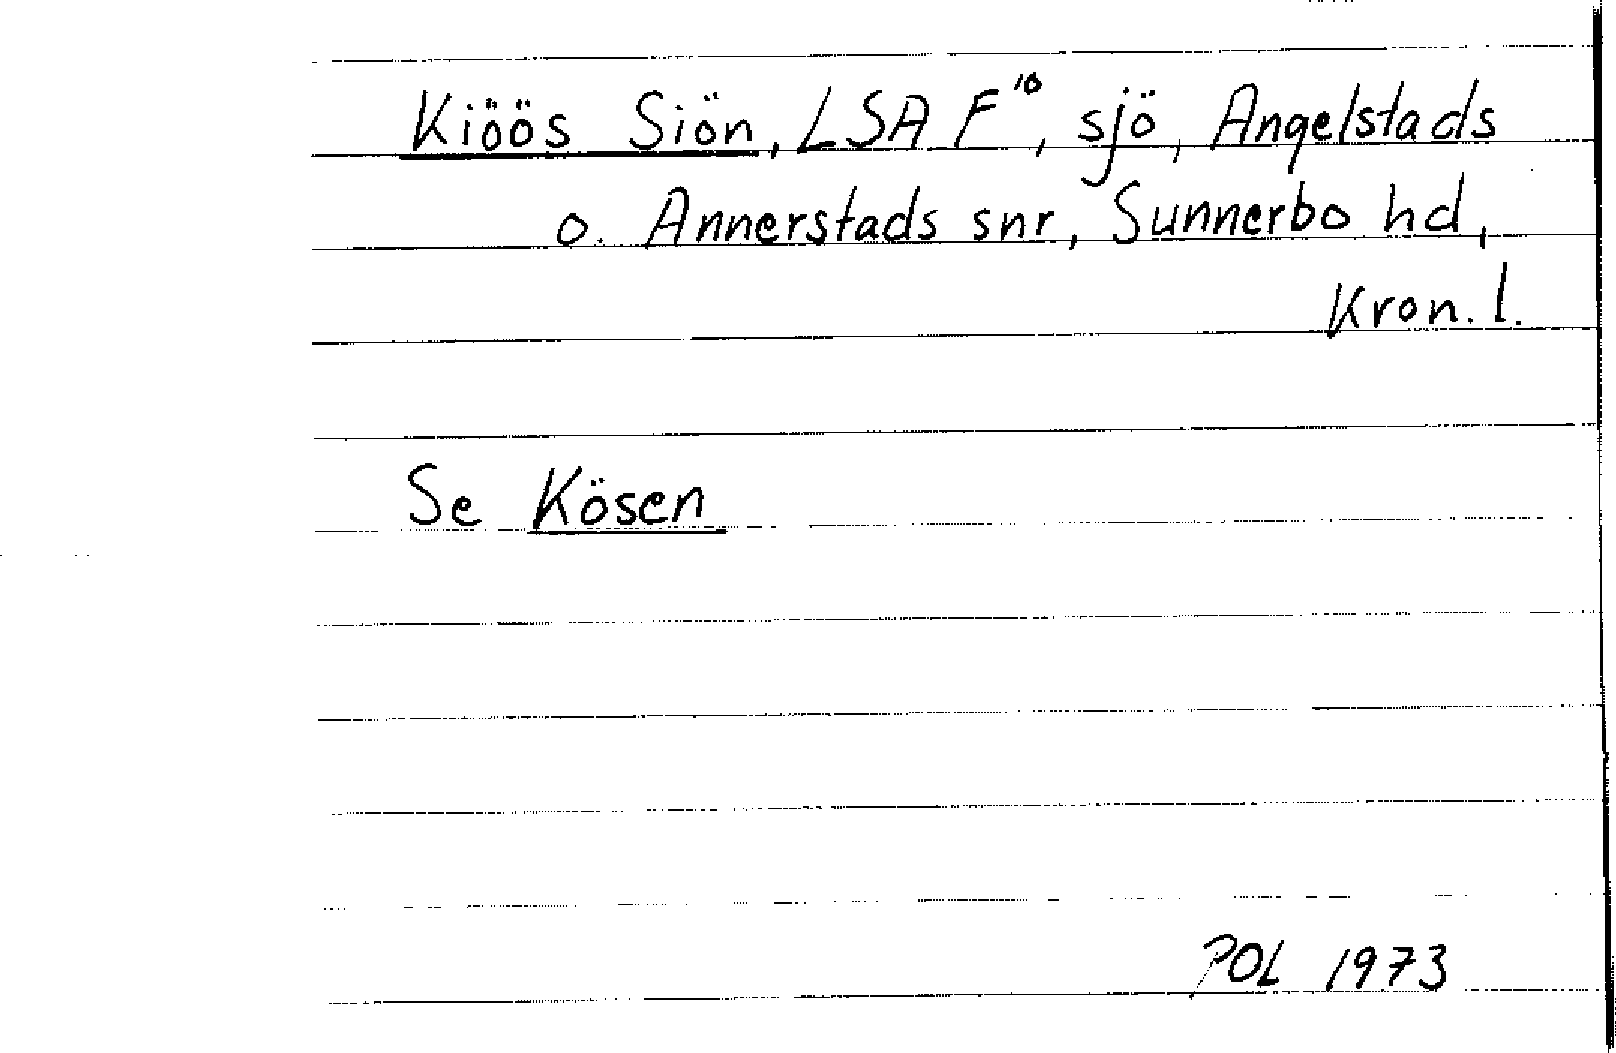 Kiöös Siön, LSA F¹⁰, sjö, Angelstads
o. Annerstads snr, Sunnerbo hd,
Kron. l.
Se Kösen
POL 1973